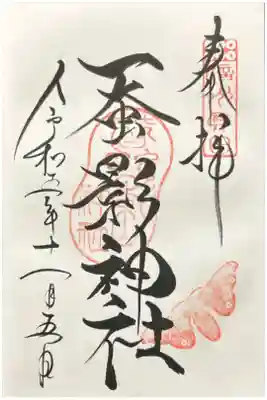 奉拝
蚕影神社
令和五年十一月五日